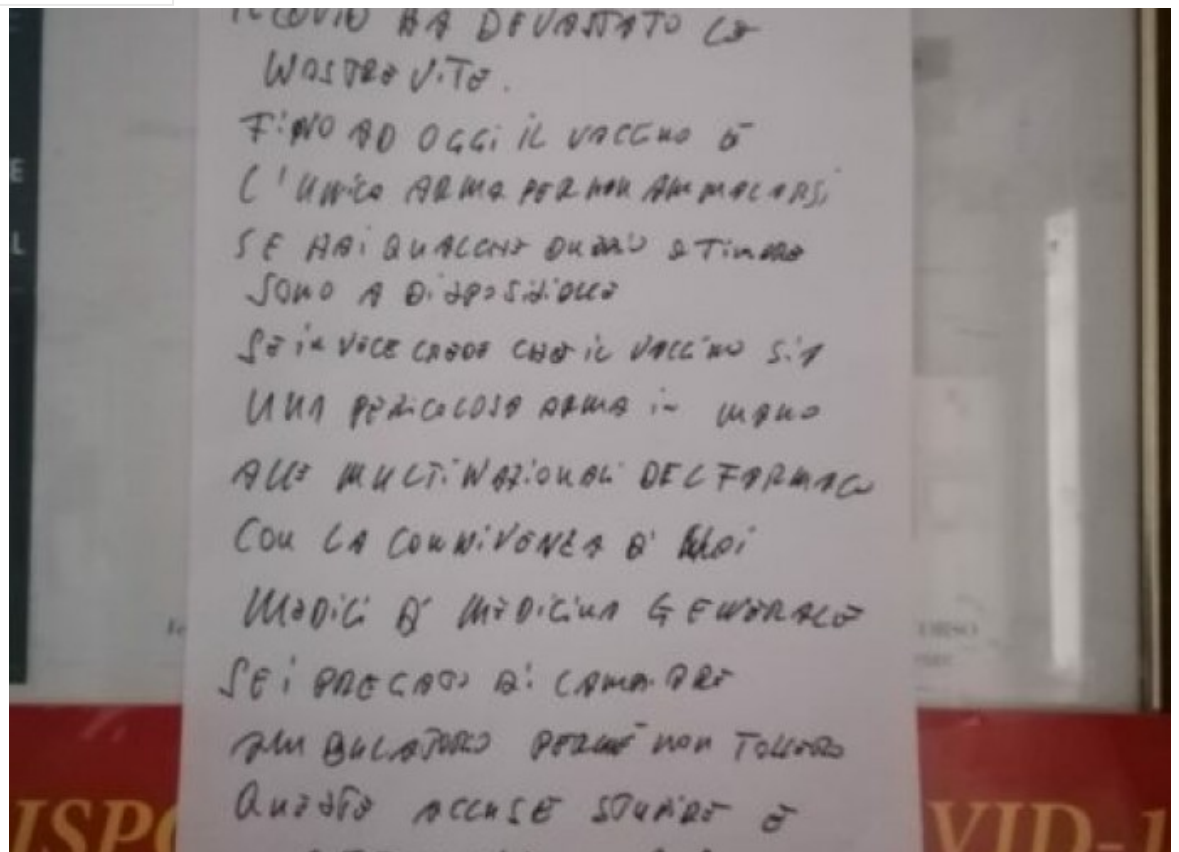 IL COVID HA DEVASTATO LE
NOSTRE VITE.
FINO AD OGGI IL VACCINO È
L'UNICA ARMA PER NON AMMALARSI
SE HAI QUALCHE DUBBIO E TIMORE
SONO A DISPOSIZIONE
SE INVECE CREDI CHE IL VACCINO SIA
UNA PERICOLOSA ARMA IN MANO
ALLE MULTINAZIONALI DEL FARMACO
CON LA CONNIVENZA DI NOI
MEDICI DI MEDICINA GENERALE
SEI PREGATO DI CAMBIARE
AMBULATORIO PERCHÉ NON TOLLERO
QUESTE ACCUSE STUPIDE E
ISPO
VID-1